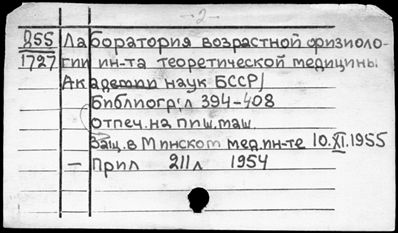 - 2 -
855 Лаборатория возрастной физиоло-
1727 гии ин-та теоретической медицины
Академии наук БССР/
Библиогр: л 394-408
отпеч. на пиш. маш.
Защ. в Минском мед. ин-те 10.XI.1955
— Прил 211 л 1954